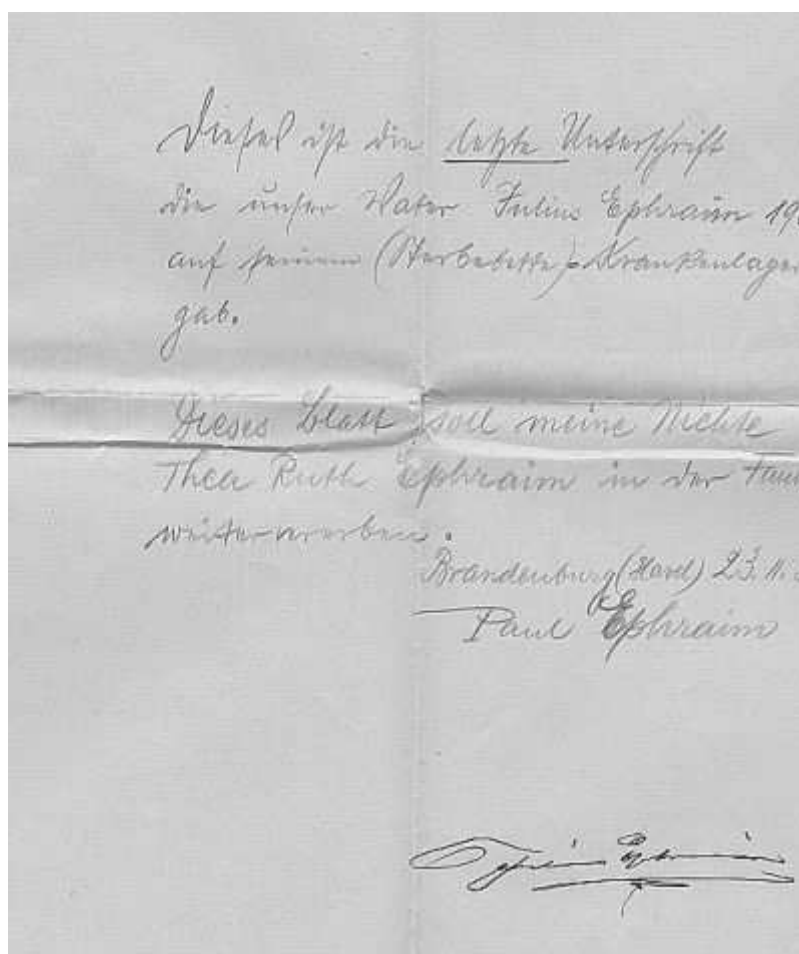 Dieses ist die letzte Unterschrift
die unser Vater Julius Ephraim 19
auf seinem (Sterbebette)=Krankenlager
gab.
Dieses Blatt soll meine Nichte
Thea Ruth Ephraim in der
weitervererben.
Brandenburg (Havel) 23. 11.
Paul Ephraim
Julius Ephraim